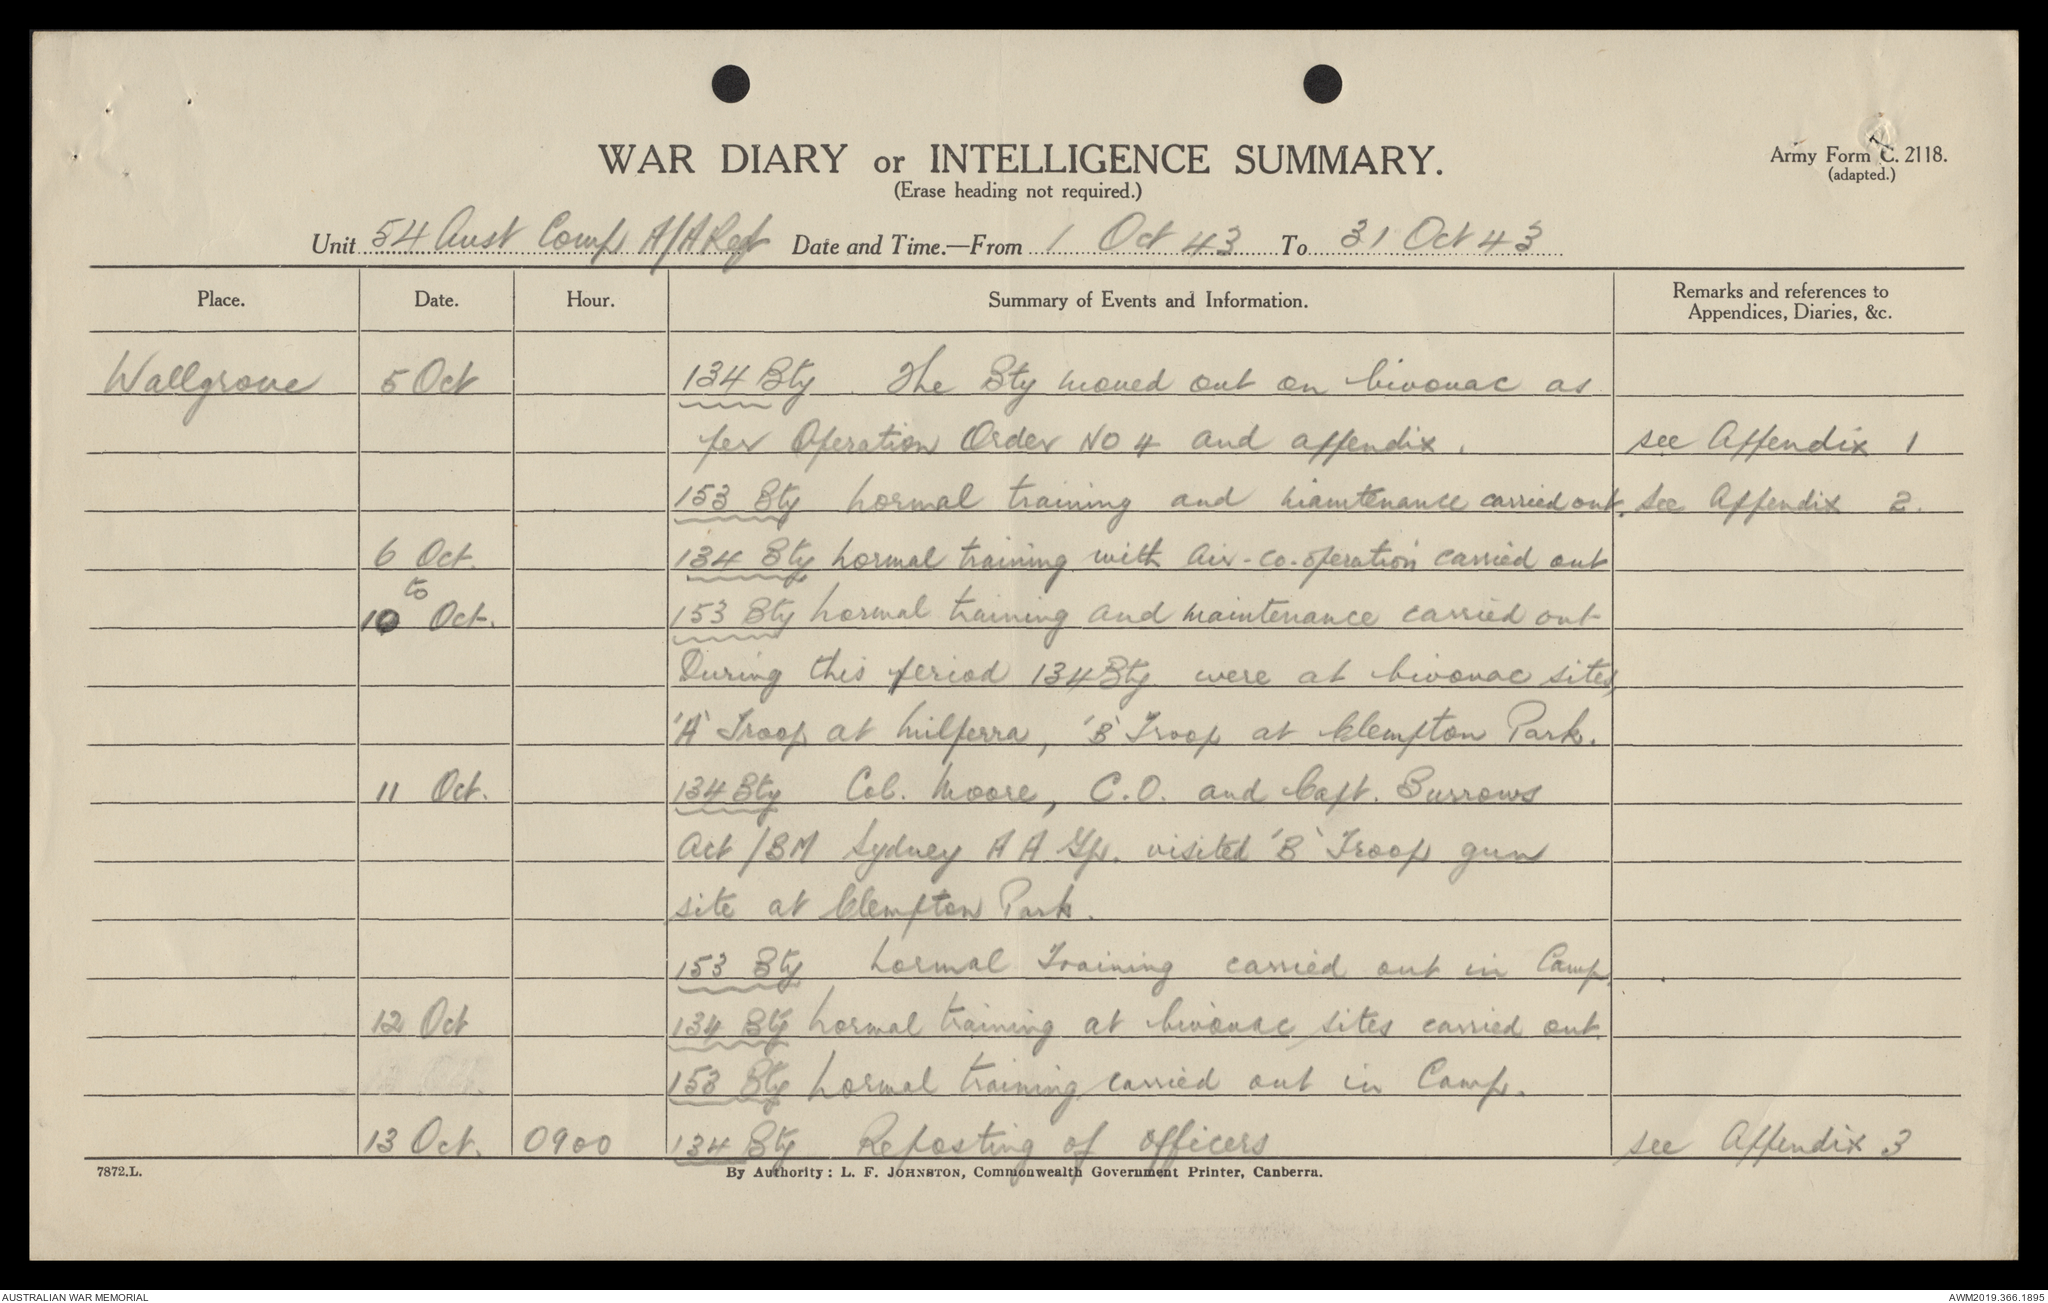 WAR DIARY or INTELLIGENCE SUMMARY.
(Erase heading not required.)
Army Form C. 2118.
(adapted.)
Unit 54 Aust Comp A/A Regt Date and Time.—From 1 Oct 43 To 31 Oct 43
Place. Date. Hour. Summary of Events and Information. Remarks and references to
Appendices, Diaries, &c.
Wallgrove 5 Oct 134 Bty. The Bty moved out on bivouac as
per Operation Order No 4 and appendix. see Appendix 1
153 Bty normal training and maintenance carried out. See Appendix 2.
6 Oct. 134 Bty normal training with Air-co-operation carried out
to
10 Oct. 153 Bty normal training and maintenance carried out
During this period 134 Bty were at bivouac sites,
'A' Troop at Milperra, 'B' Troop at Clempton Park.
11 Oct. 134 Bty Col. Moore, C.O. and Capt. Burrows
Act/BM Sydney A A Gp. visited 'B' Troop gun
site at Clempton Park.
153 Bty normal Training carried out in Camp.
12 Oct 134 Bty normal training at bivouac sites carried out.
153 Bty normal training carried out in Camp.
13 Oct. 0900 134 Bty Reposting of Officers see Appendix 3
7872.L. By Authority: L. F. JOHNSTON, Commonwealth Government Printer, Canberra.
AUSTRALIAN WAR MEMORIAL AWM2019.366.1895